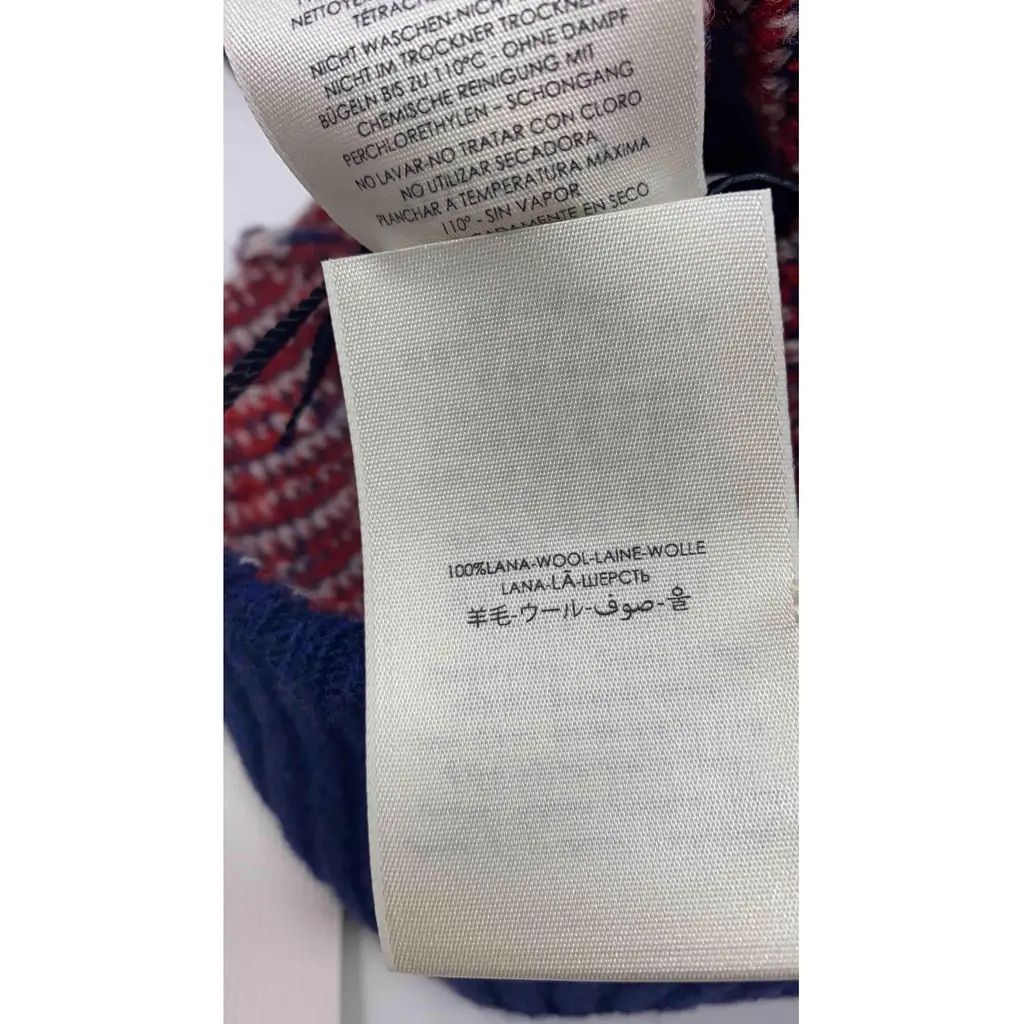 NETTOYER
NICHT WASCHEN-NICHT
NICHT IM TROCKNER TROCKNEN
BÜGELN BIS ZU 110°C - OHNE DAMPF
CHEMISCHE REINIGUNG MIT
PERCHLORETHYLEN – SCHONGANG
NO LAVAR-NO TRATAR CON CLORO
NO UTILIZAR SECADORA
PLANCHAR A TEMPERATURA MÁXIMA
110° - SIN VAPOR
EN SECO
100%LANA-WOOL-LAINE-WOLLE
LANA-LÃ-ШЕРСТЬ
羊毛-ウール-صوف-울